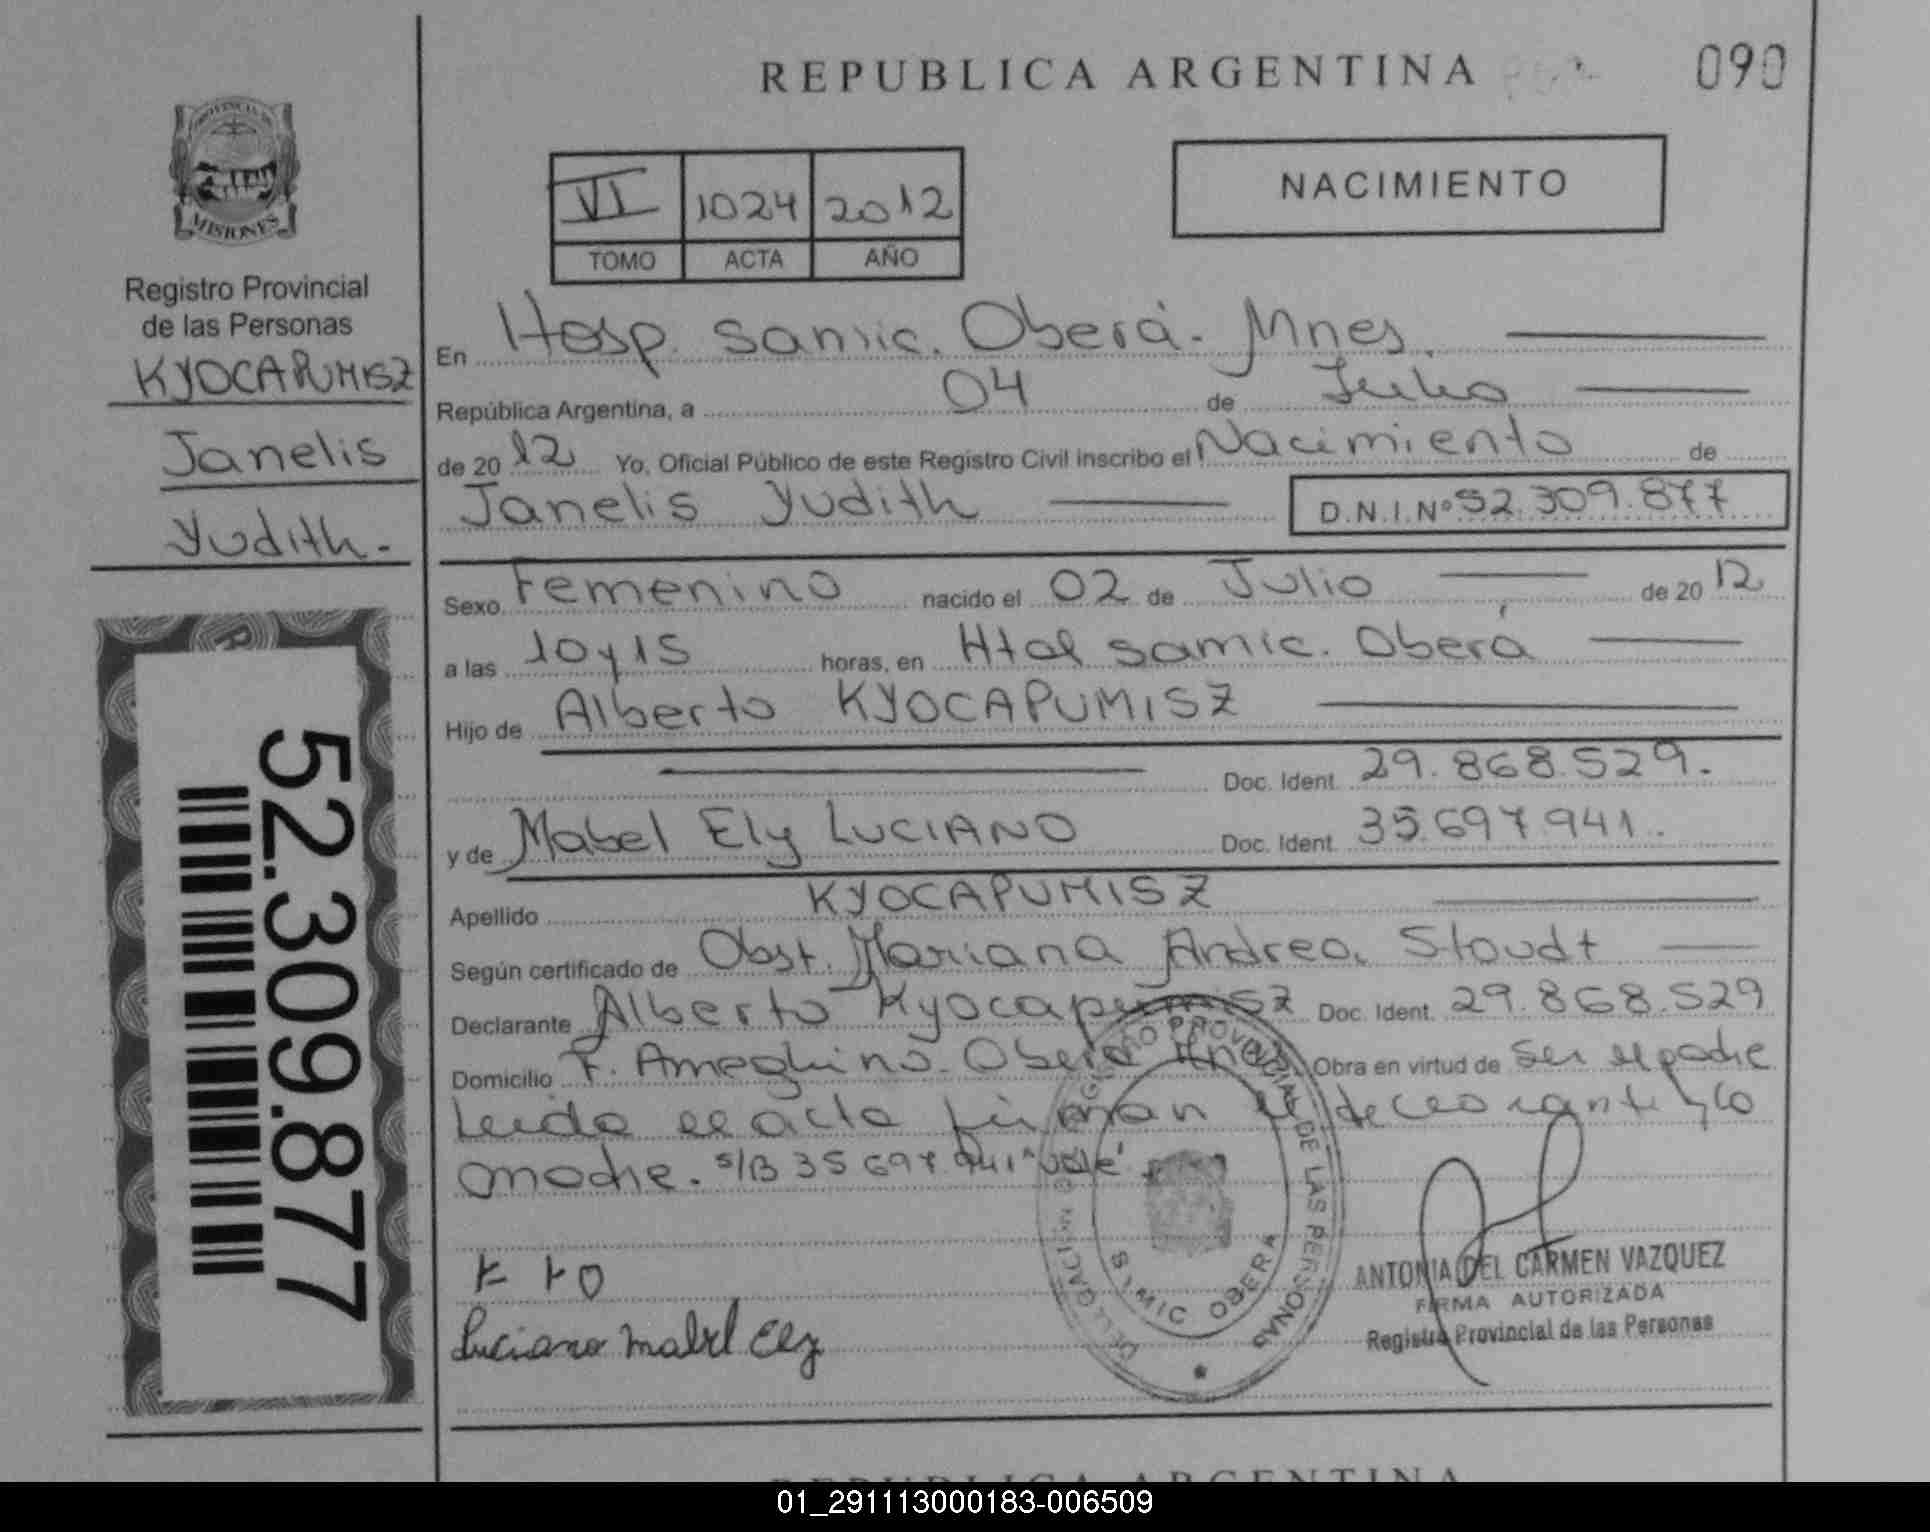 REPUBLICA ARGENTINA
090
PROVINCIA DE
MISIONES
Registro Provincial
de las Personas
KYOCAPUMISZ
Janelis
Yudith.-
52.309.877
VI 1024 2012
TOMO ACTA AÑO
NACIMIENTO
En Hosp. Samic. Oberá. Mnes.
República Argentina, a 04 de Julio
de 20 12 Yo, Oficial Público de este Registro Civil inscribo el Nacimiento de
Janelis Yudith D.N.I.Nº 52.309.877
Sexo Femenino nacido el 02 de Julio de 20 12
a las 10 y 15 horas, en Htal samic. Oberá
Hijo de Alberto KYOCAPUMISZ
Doc. Ident. 29.868.529.
y de Mabel Ely LUCIANO Doc. Ident. 35.697.941.
Apellido KYOCAPUMISZ
Según certificado de Obst. Mariana Andrea Stoudt
Declarante Alberto Kyocapumisz Doc. Ident. 29.868.529
Domicilio F. Ameghino. Oberá Mnes. Obra en virtud de ser el padre
Leida el acta firman el declarante y la
madre. s/B 35 697 941 "vale".
Luciano Mabel Ely
DELEGACION REGISTRO PROVINCIAL DE LAS PERSONAS
SAMIC OBERA
ANTONIA DEL CARMEN VAZQUEZ
FIRMA AUTORIZADA
Registro Provincial de las Personas
REPUBLICA ARGENTINA
01_291113000183-006509